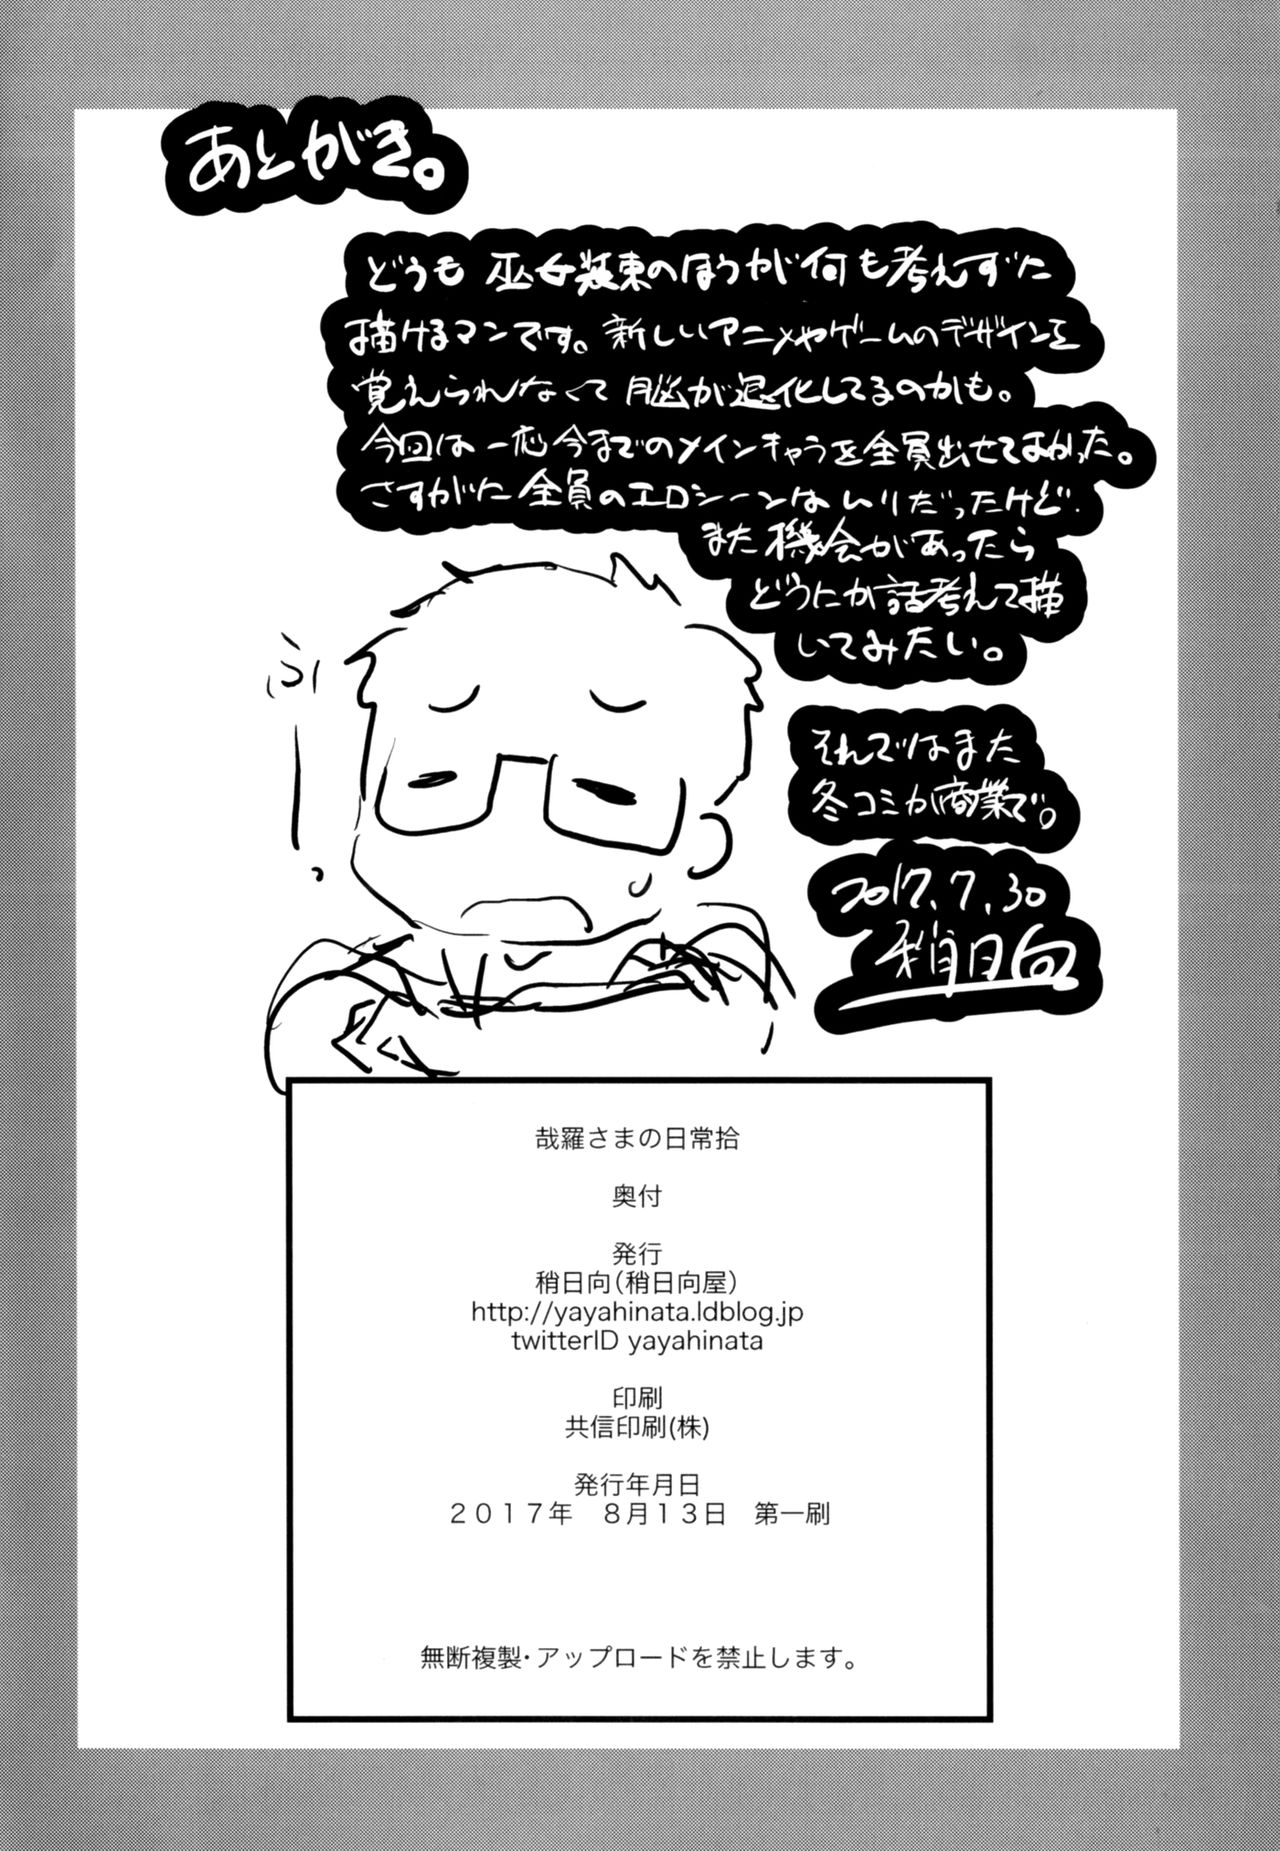 あとがき。
どうも 巫女装束のほうが何も考えずに
描けるマンです。新しいアニメやゲームのデザインを
覚えられなくて 脳が退化してるのかも。
今回は一応今までのメインキャラを全員出せてよかった。
さすがに全員のエロシーンはムリだったけど
また機会があったら
どうにか話考えて描
いてみたい。
ふぅ
それではまた
冬コミか商業で。
2017.7.30
稍日向
哉羅さまの日常拾
奥付
発行
稍日向(稍日向屋)
http://yayahinata.ldblog.jp
twitterID yayahinata
印刷
共信印刷(株)
発行年月日
２０１７年　８月１３日　第一刷
無断複製・アップロードを禁止します。